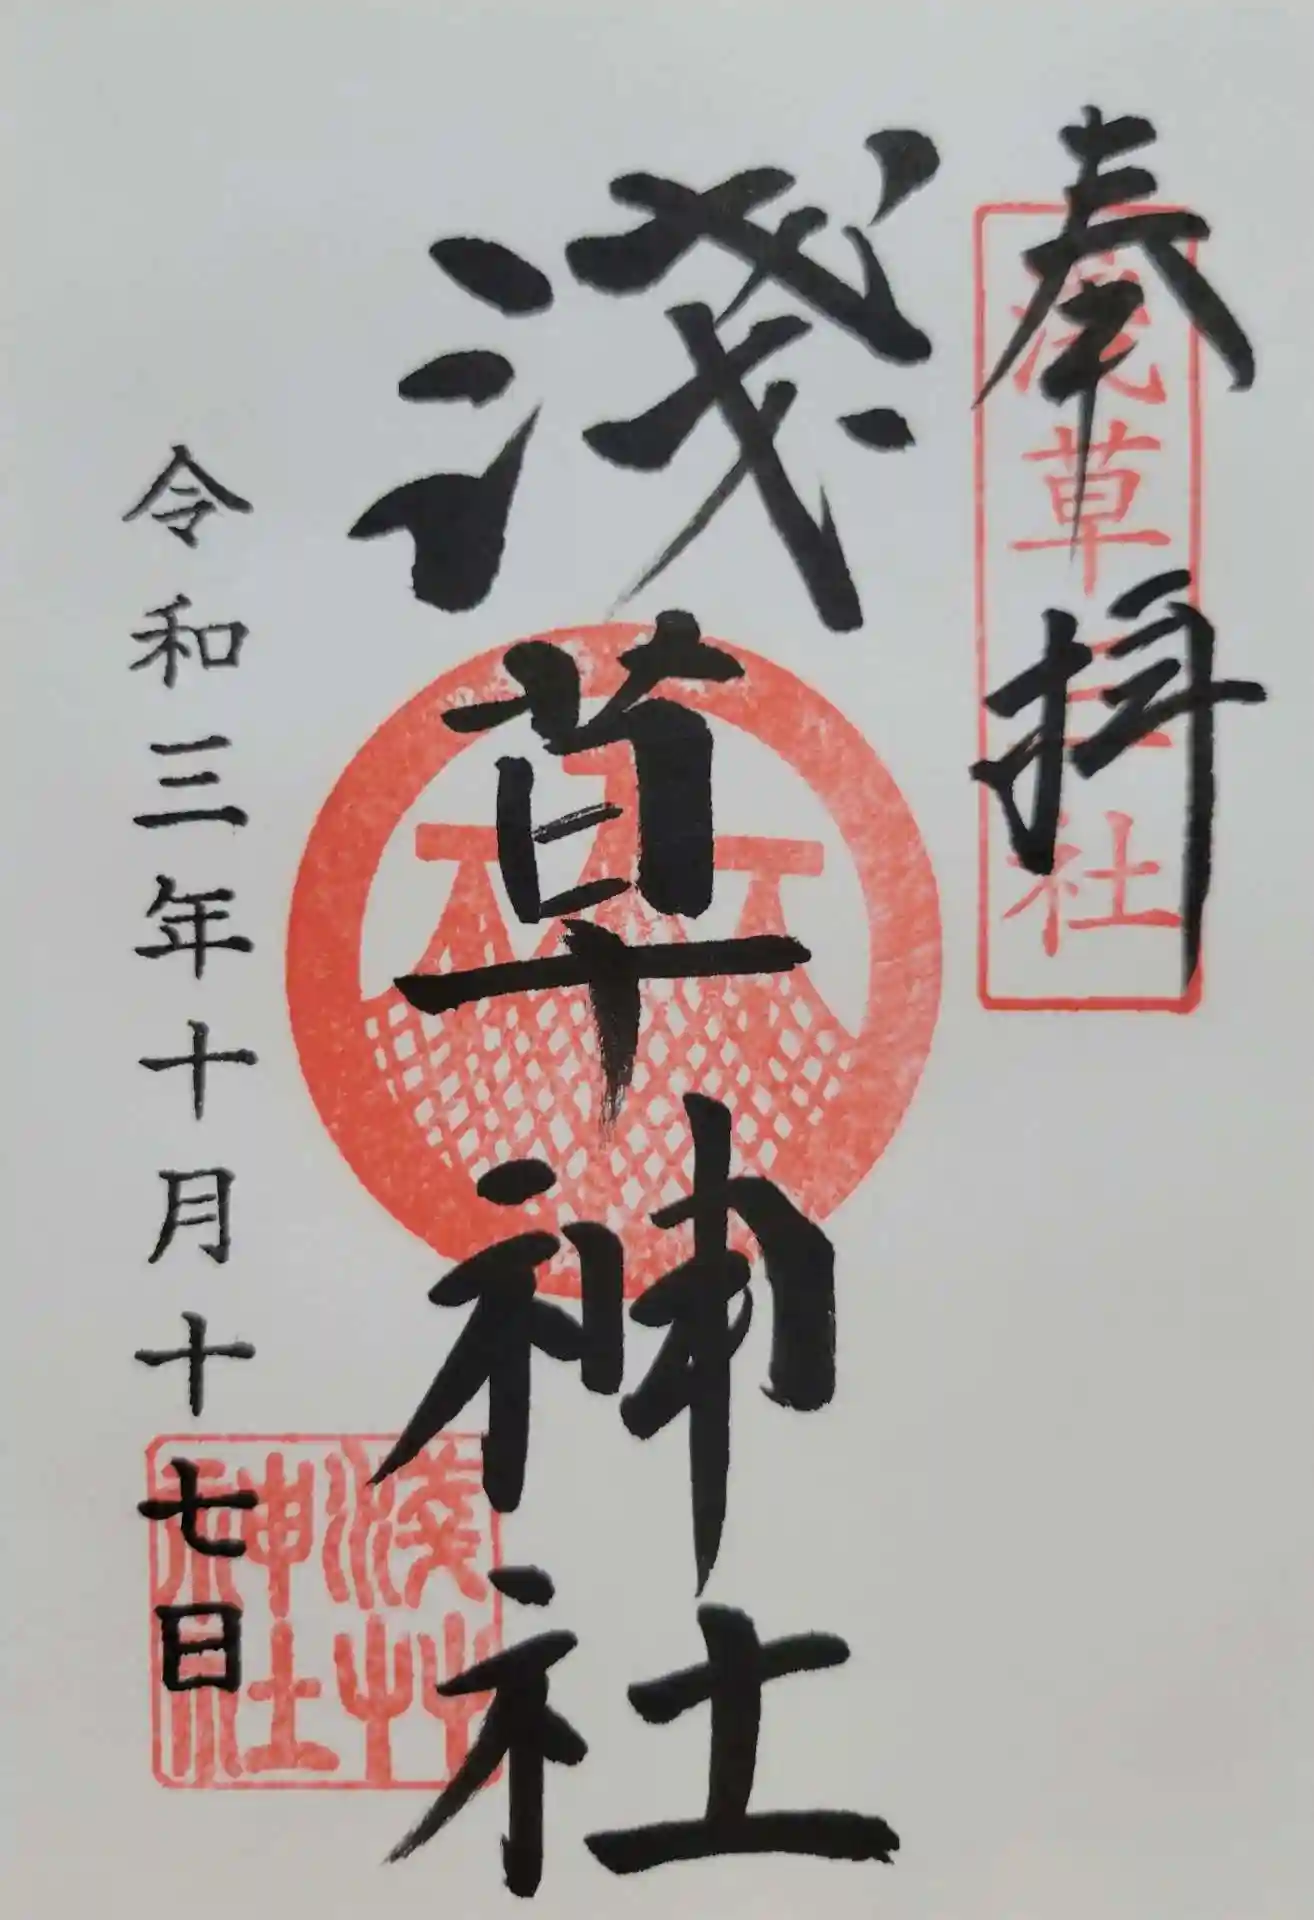 奉拝
浅草三社
淺草神社
令和三年十月十七日
淺艸神社